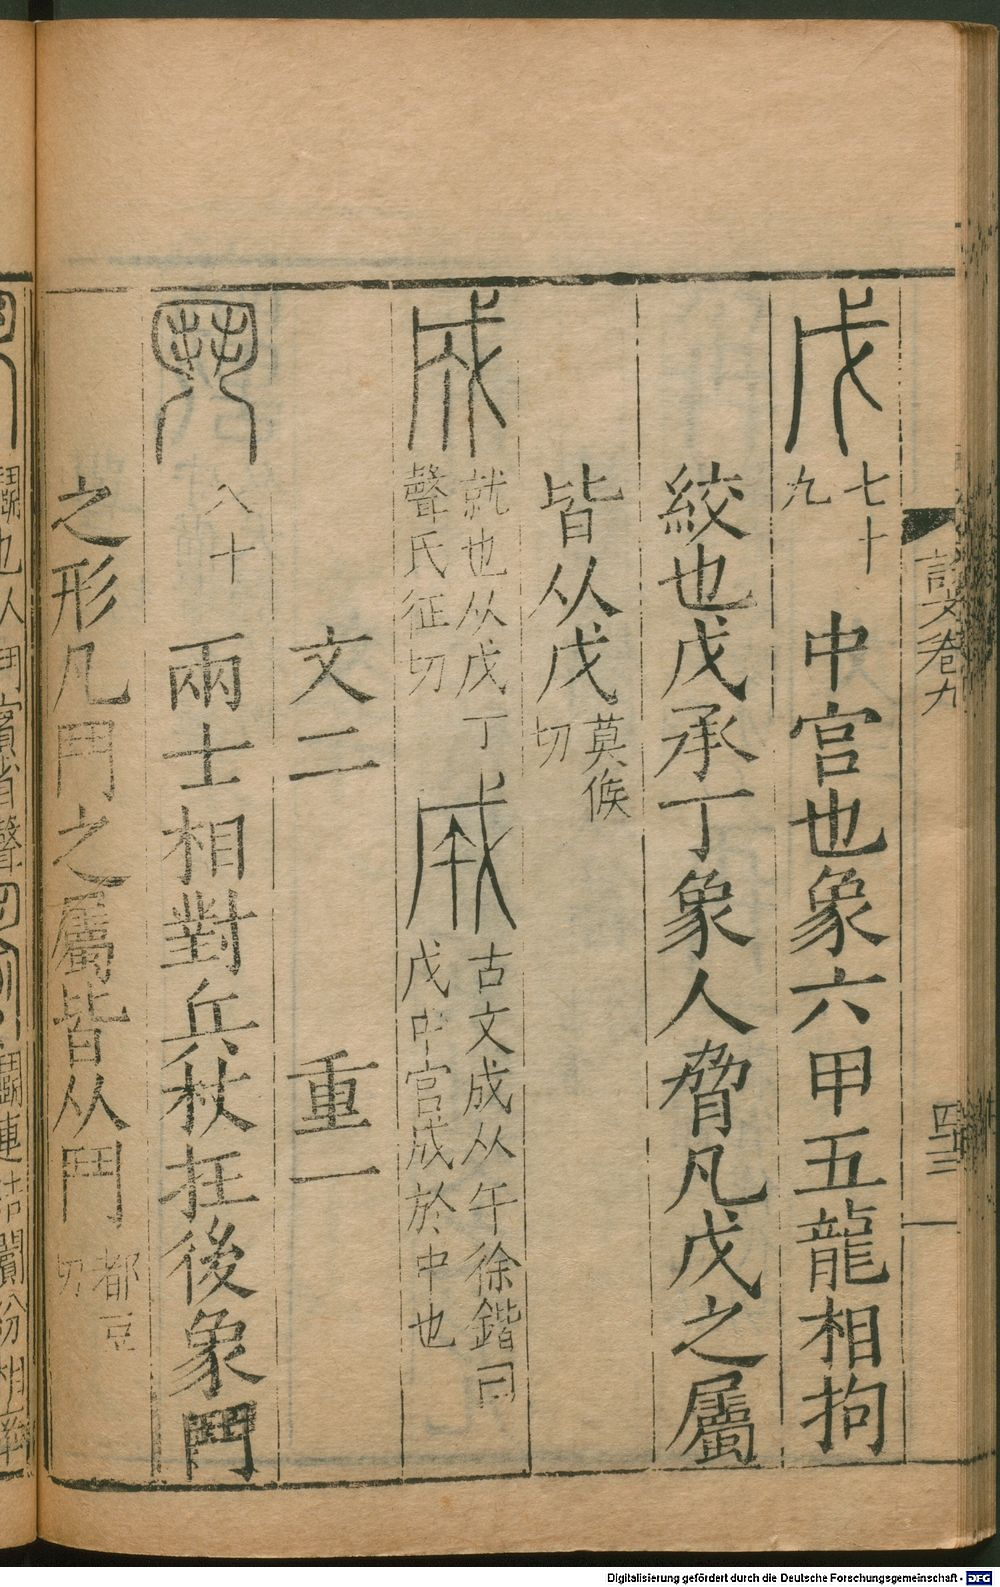 說文卷九
四十三
戊 七十九 中宫也象六甲五龍相拘
絞也戊承丁象人脅凡戊之屬
皆从戊 莫候切
成 就也从戊丁聲氏征切 𢦩 古文成从午徐鍇曰戊中宫成於中也
文二 重一
鬥 八十 兩士相對兵杖在後象鬥
之形凡鬥之屬皆从鬥 都豆切
Digitalisierung gefördert durch die Deutsche Forschungsgemeinschaft - DFG